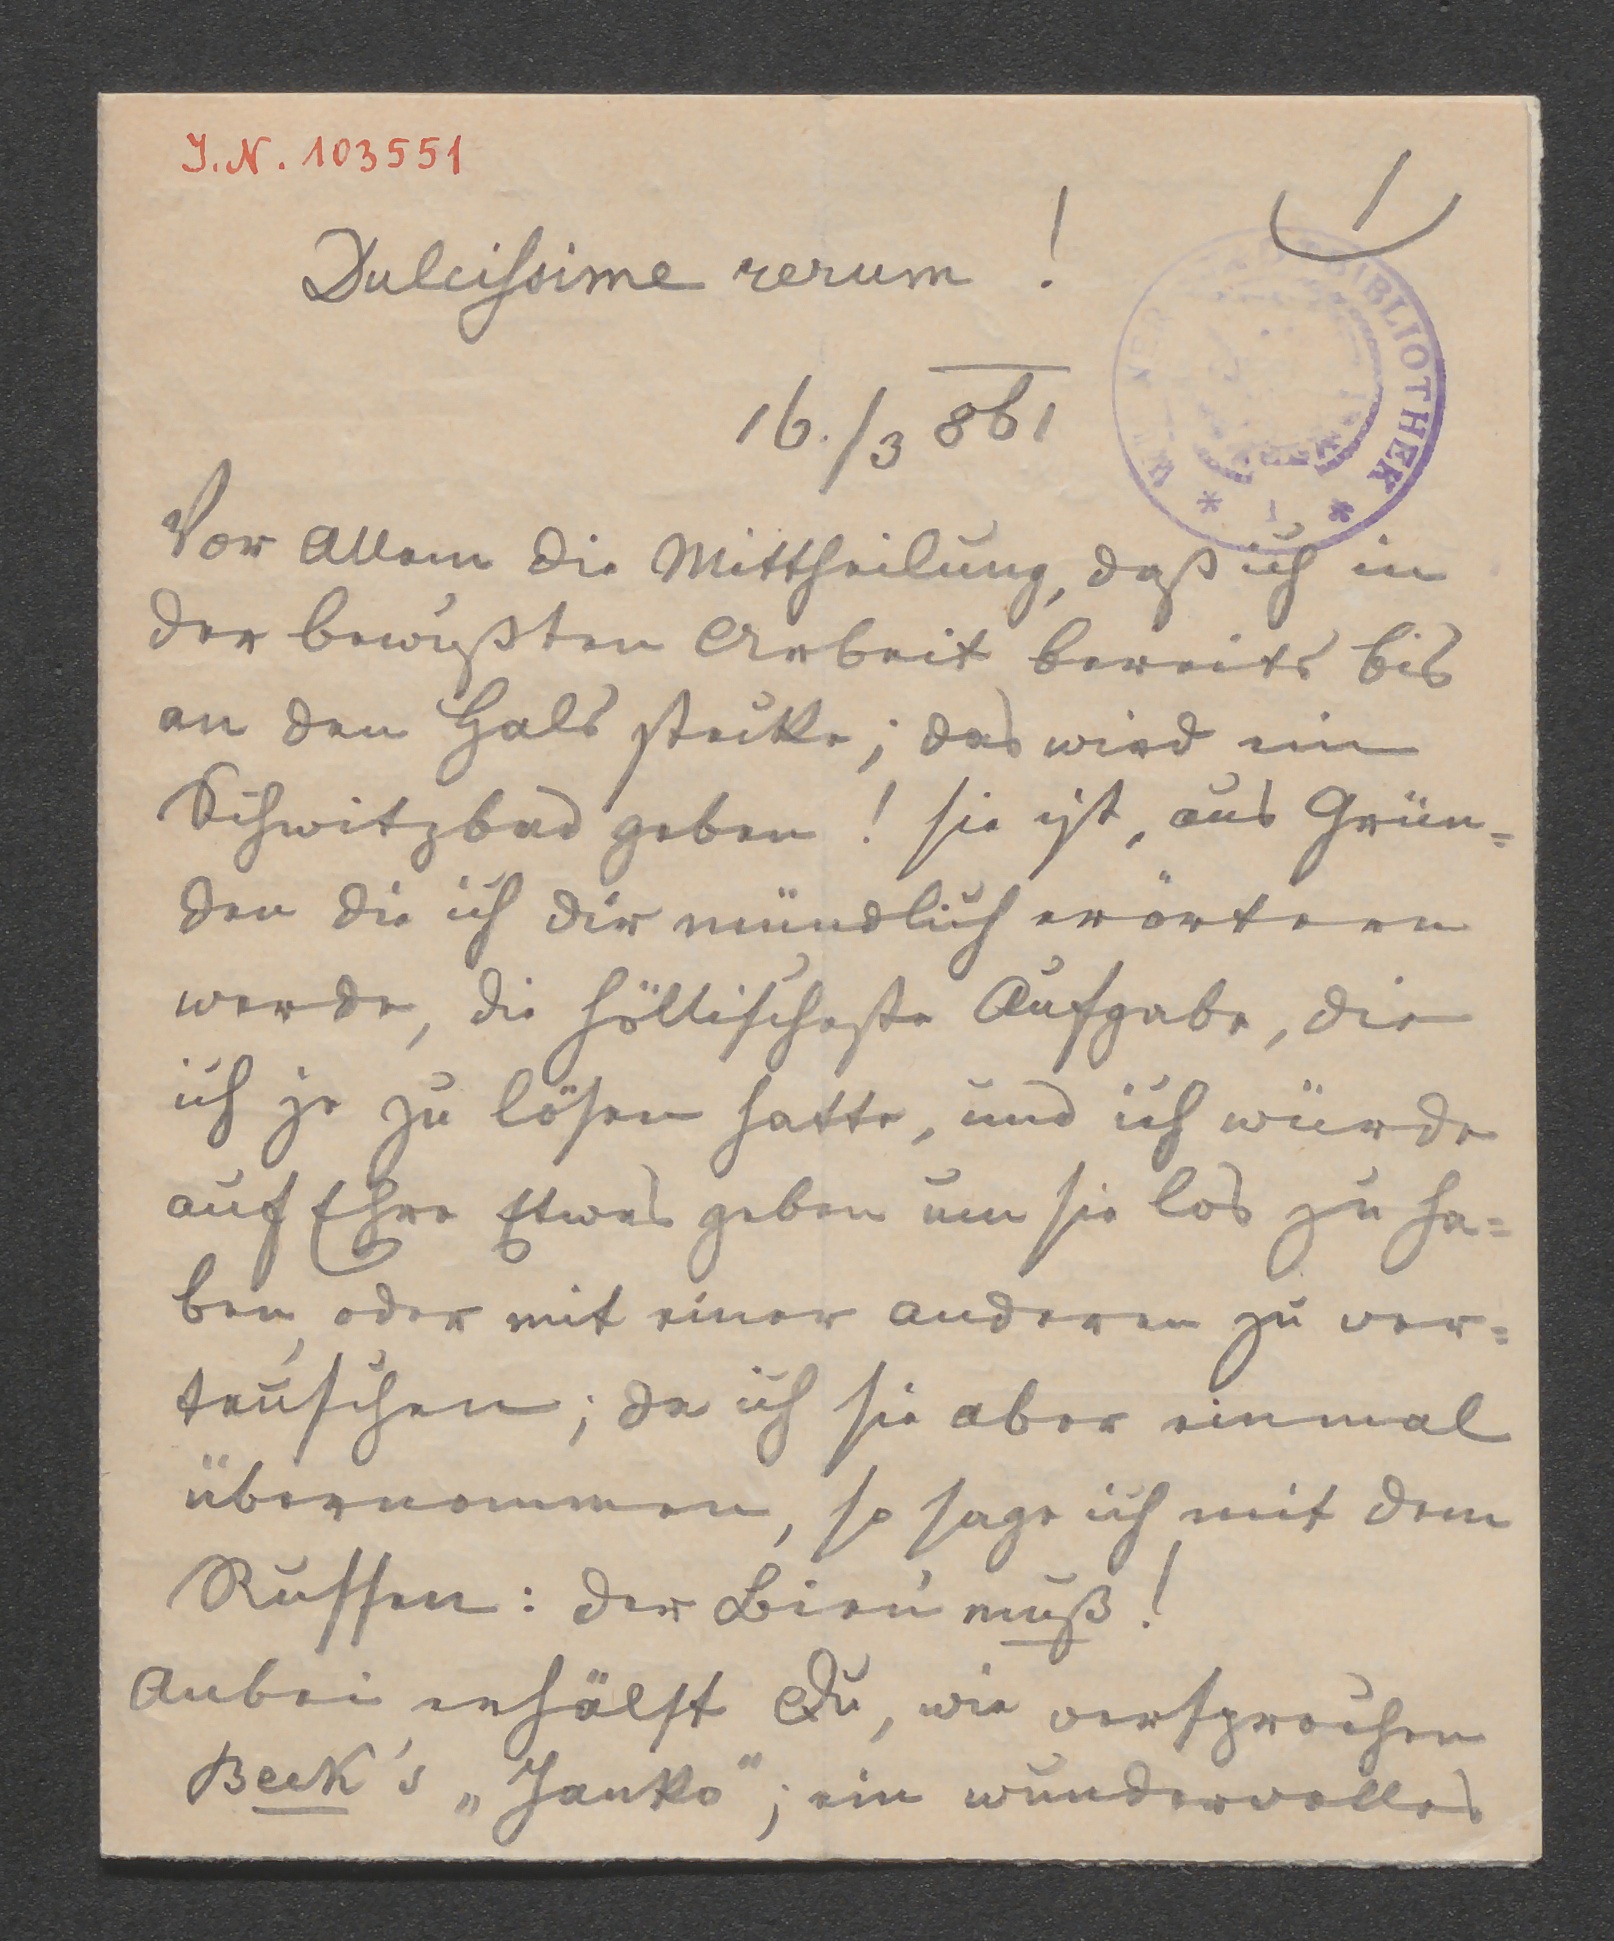 J.N. 103551
1
Dulcissime rerum !
16./3 861
BIBLIOTHEK
Vor Allem die Mittheilung, daß ich in
der bewußten Arbeit bereits bis
an den Hals stecke; das wird ein
Schwitzbad geben! sie ist, aus Grün=
den die ich dir mündlich erörtern
werde, die höllischeste Aufgabe, die
ich je zu lösen hatte, und ich würde
auf Ehre Etwas geben um sie los zu ha=
ben, oder mit einer anderen zu ver=
tauschen; da ich sie aber einmal
übernommen, so sage ich mit dem
Russen: der Bien' muß!
Anbei erhälst Du, wie versprochen
Beck's „Janko"; ein wundervolles